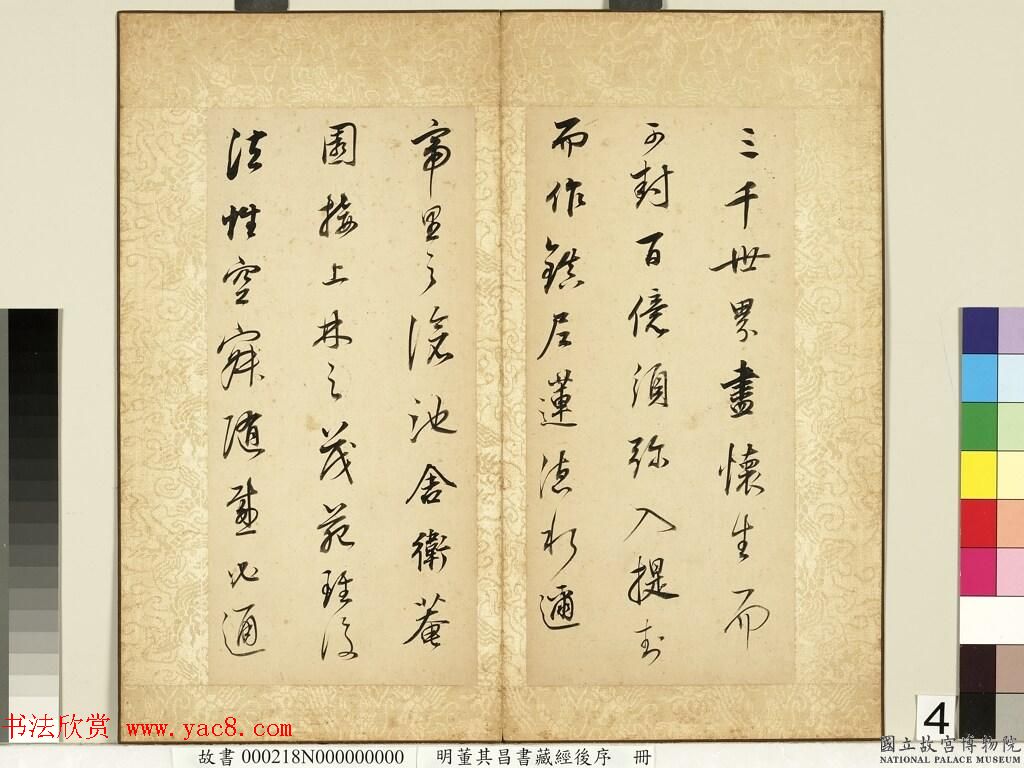 三千世界盡懷生而
可封百億須弥入提封
而作鎮尼蓮德水邇
帝里之滄池舍衛菴
園接上林之茂苑雖復
法性空寂隨感必通
4
书法欣赏 www.yac8.com
故書 000218N000000000 明董其昌書藏經後序 冊
國立故宮博物院
NATIONAL PALACE MUSEUM